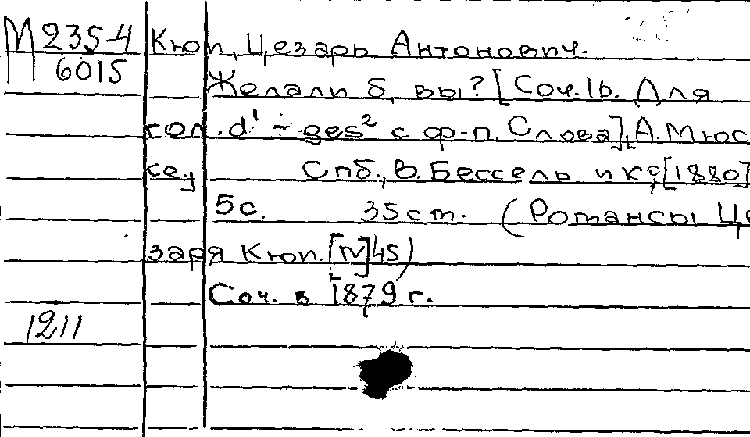 М 235-4 Кюи, Цезарь Антонович.
6015
Желали б, вы? [Соч. 16. Для
гол. d¹ ÷ ges² с ф-п. Слова], А. Мюс
се, Спб., В. Бессель и К°, [1880]
5с. 35 ст. (Романсы Це
заря Кюи. [IV] 45)
Соч. в 1879 г.
1211